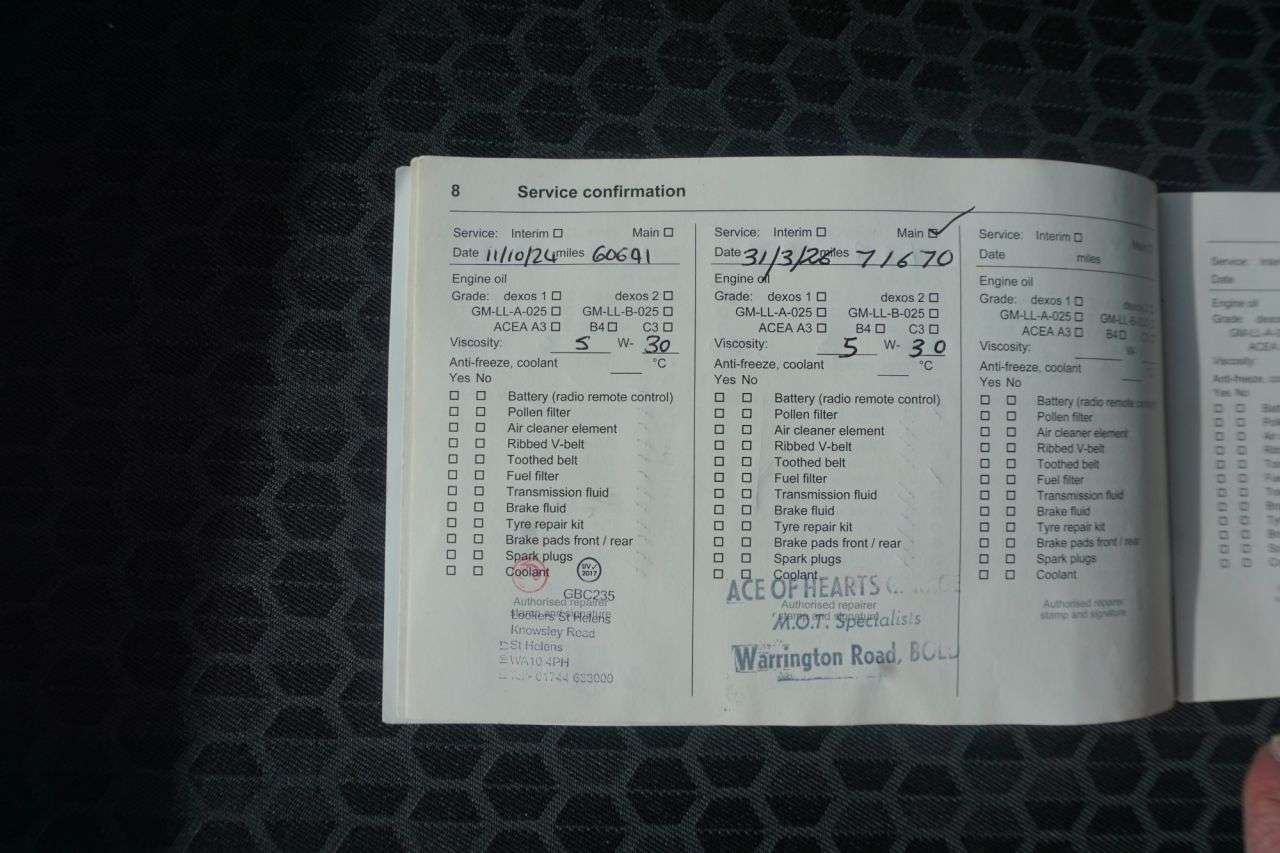 8 Service confirmation
Service: Interim ☐ Main ☐
Date 11/10/24 miles 60691
Engine oil
Grade: dexos 1 ☐ dexos 2 ☐
GM-LL-A-025 ☐ GM-LL-B-025 ☐
ACEA A3 ☐ B4 ☐ C3 ☐
Viscosity: 5 W- 30
Anti-freeze, coolant ____ °C
Yes No
☐ ☐ Battery (radio remote control)
☐ ☐ Pollen filter
☐ ☐ Air cleaner element
☐ ☐ Ribbed V-belt
☐ ☐ Toothed belt
☐ ☐ Fuel filter
☐ ☐ Transmission fluid
☐ ☐ Brake fluid
☐ ☐ Tyre repair kit
☐ ☐ Brake pads front / rear
☐ ☐ Spark plugs
☐ ☐ Coolant
2017
GBC235
Authorised repairer
stamp and signature
Lookers St Helens
Knowsley Road
St Helens
WA10 4PH
01744 633000
Service: Interim ☐ Main ☑
Date 31/3/26 miles 71670
Engine oil
Grade: dexos 1 ☐ dexos 2 ☐
GM-LL-A-025 ☐ GM-LL-B-025 ☐
ACEA A3 ☐ B4 ☐ C3 ☐
Viscosity: 5 W- 30
Anti-freeze, coolant ____ °C
Yes No
☐ ☐ Battery (radio remote control)
☐ ☐ Pollen filter
☐ ☐ Air cleaner element
☐ ☐ Ribbed V-belt
☐ ☐ Toothed belt
☐ ☐ Fuel filter
☐ ☐ Transmission fluid
☐ ☐ Brake fluid
☐ ☐ Tyre repair kit
☐ ☐ Brake pads front / rear
☐ ☐ Spark plugs
☐ ☐ Coolant
ACE OF HEARTS
Authorised repairer
stamp and signature
M.O.T. Specialists
Warrington Road,
Service: Interim ☐ Main ☐
Date miles
Engine oil
Grade: dexos 1 ☐ dexos
GM-LL-A-025 ☐ GM-LL-B-025
ACEA A3 ☐ B4 ☐
Viscosity: ____ W-
Anti-freeze, coolant ____ °C
Yes No
☐ ☐ Battery (radio remote control)
☐ ☐ Pollen filter
☐ ☐ Air cleaner element
☐ ☐ Ribbed V-belt
☐ ☐ Toothed belt
☐ ☐ Fuel filter
☐ ☐ Transmission fluid
☐ ☐ Brake fluid
☐ ☐ Tyre repair kit
☐ ☐ Brake pads front / rear
☐ ☐ Spark plugs
☐ ☐ Coolant
Authorised repairer
stamp and signature
Service:
Date
Engine oil
Grade:
Viscosity:
Yes No